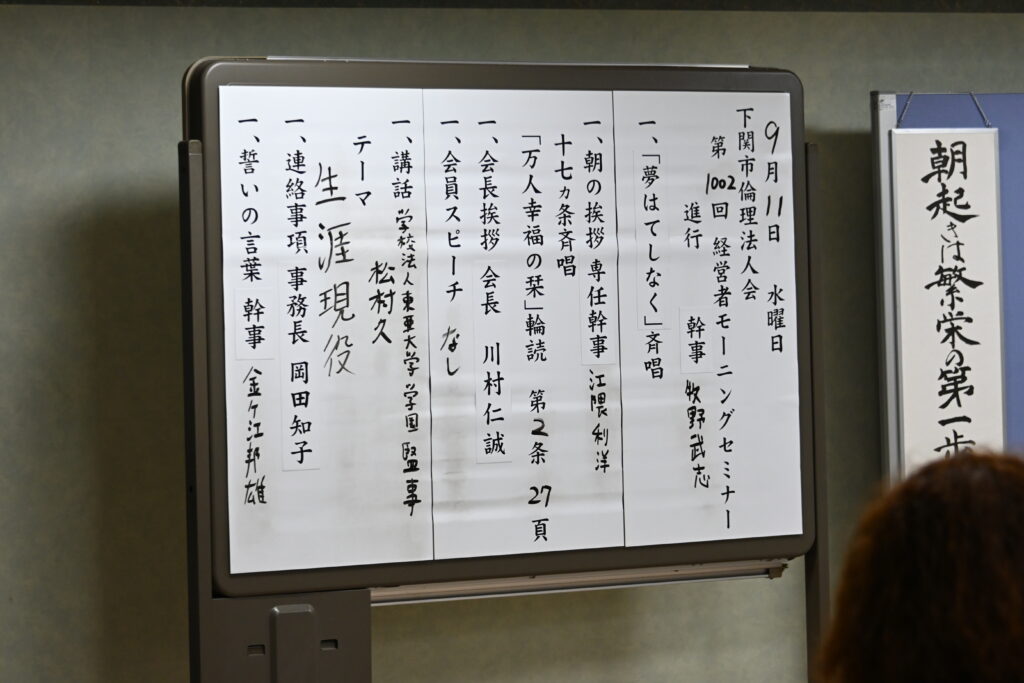 9月11日 水曜日
下関市倫理法人会
第1002回 経営者モーニングセミナー
進行 幹事 牧野武志
一、「夢はてしなく」斉唱
一、朝の挨拶 専任幹事 江隈利洋
十七ヵ条斉唱
「万人幸福の栞」輪読 第2条 27頁
一、会長挨拶 会長 川村仁誠
一、会員スピーチ なし
一、講話 学校法人東亜大学学園監事
松村久
テーマ
生涯現役
一、連絡事項 事務長 岡田知子
一、誓いの言葉 幹事 金ヶ江邦雄
朝起きは繁栄の第一歩